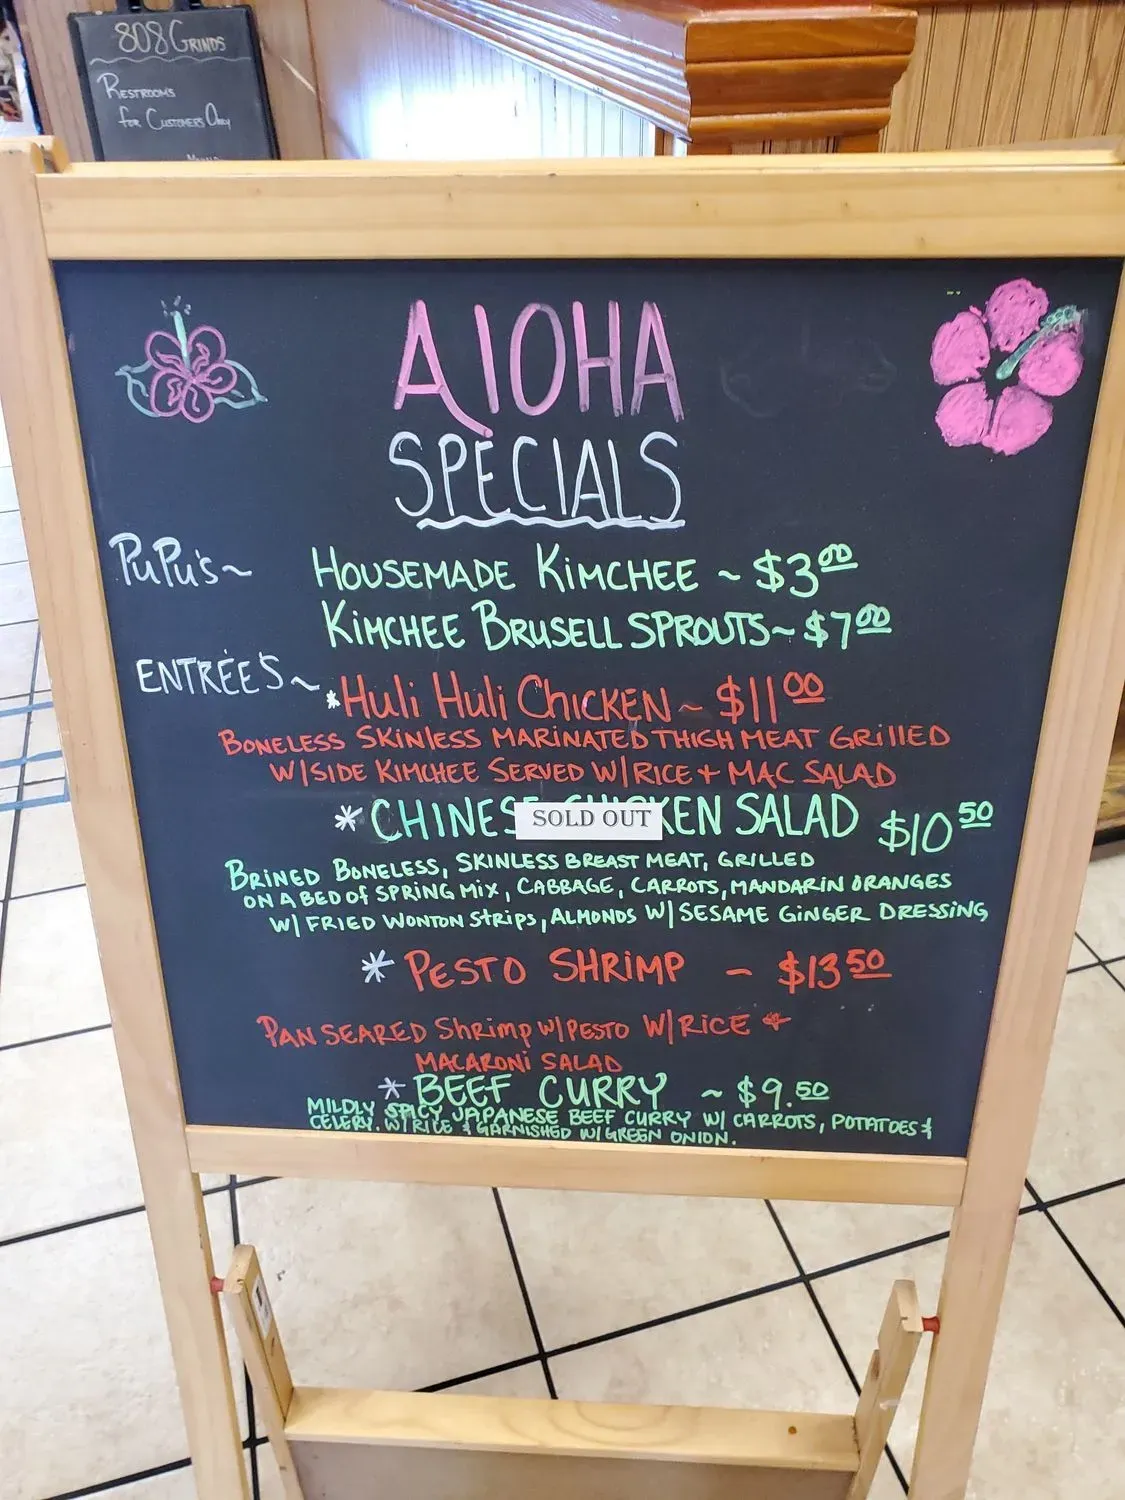 808 GRINDS
RESTROOMS
FOR CUSTOMERS ONLY
ALOHA
SPECIALS
PUPU'S~ HOUSEMADE KIMCHEE ~ $3.00
KIMCHEE BRUSELL SPROUTS~ $7.00
ENTRÉE'S~ *HULI HULI CHICKEN ~ $11.00
BONELESS SKINLESS MARINATED THIGH MEAT GRILLED
W/SIDE KIMCHEE SERVED W/RICE + MAC SALAD
*CHINESE CHICKEN SALAD $10.50
SOLD OUT
BRINED BONELESS, SKINLESS BREAST MEAT, GRILLED
ON A BED OF SPRING MIX, CABBAGE, CARROTS, MANDARIN ORANGES
W/ FRIED WONTON STRIPS, ALMONDS W/ SESAME GINGER DRESSING
*PESTO SHRIMP ~ $13.50
PAN SEARED SHRIMP W/PESTO W/RICE &
MACARONI SALAD
*BEEF CURRY ~ $9.50
MILDLY SPICY JAPANESE BEEF CURRY W/ CARROTS, POTATOES &
CELERY. W/ RICE & GARNISHED W/ GREEN ONION.